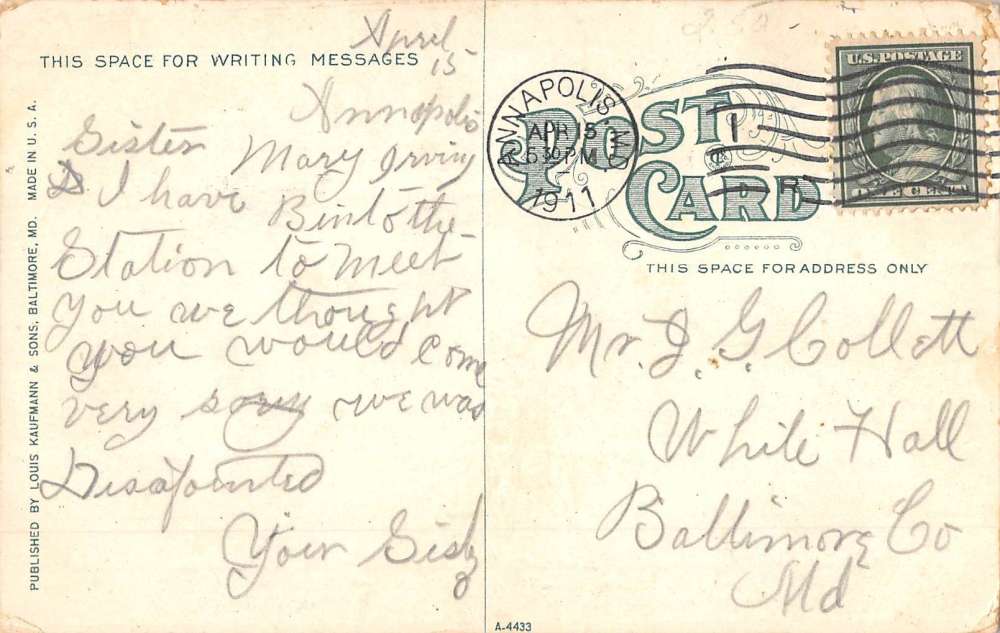 THIS SPACE FOR WRITING MESSAGES
April
15
Annopolis
Sister
Mary Irving
I have Bin to the
Station to meet
you we thought
you would come
very sorry we was
Disapointed
Your Sis
PUBLISHED BY LOUIS KAUFMANN & SONS, BALTIMORE, MD. MADE IN U. S. A.
ANNAPOLIS, MD.
APR 15
5 30 PM
1911
POST
CARD
U.S. POSTAGE
ONE CENT
THIS SPACE FOR ADDRESS ONLY
Mr. J. G. Collett
White Hall
Baltimore Co
Md
A-4433